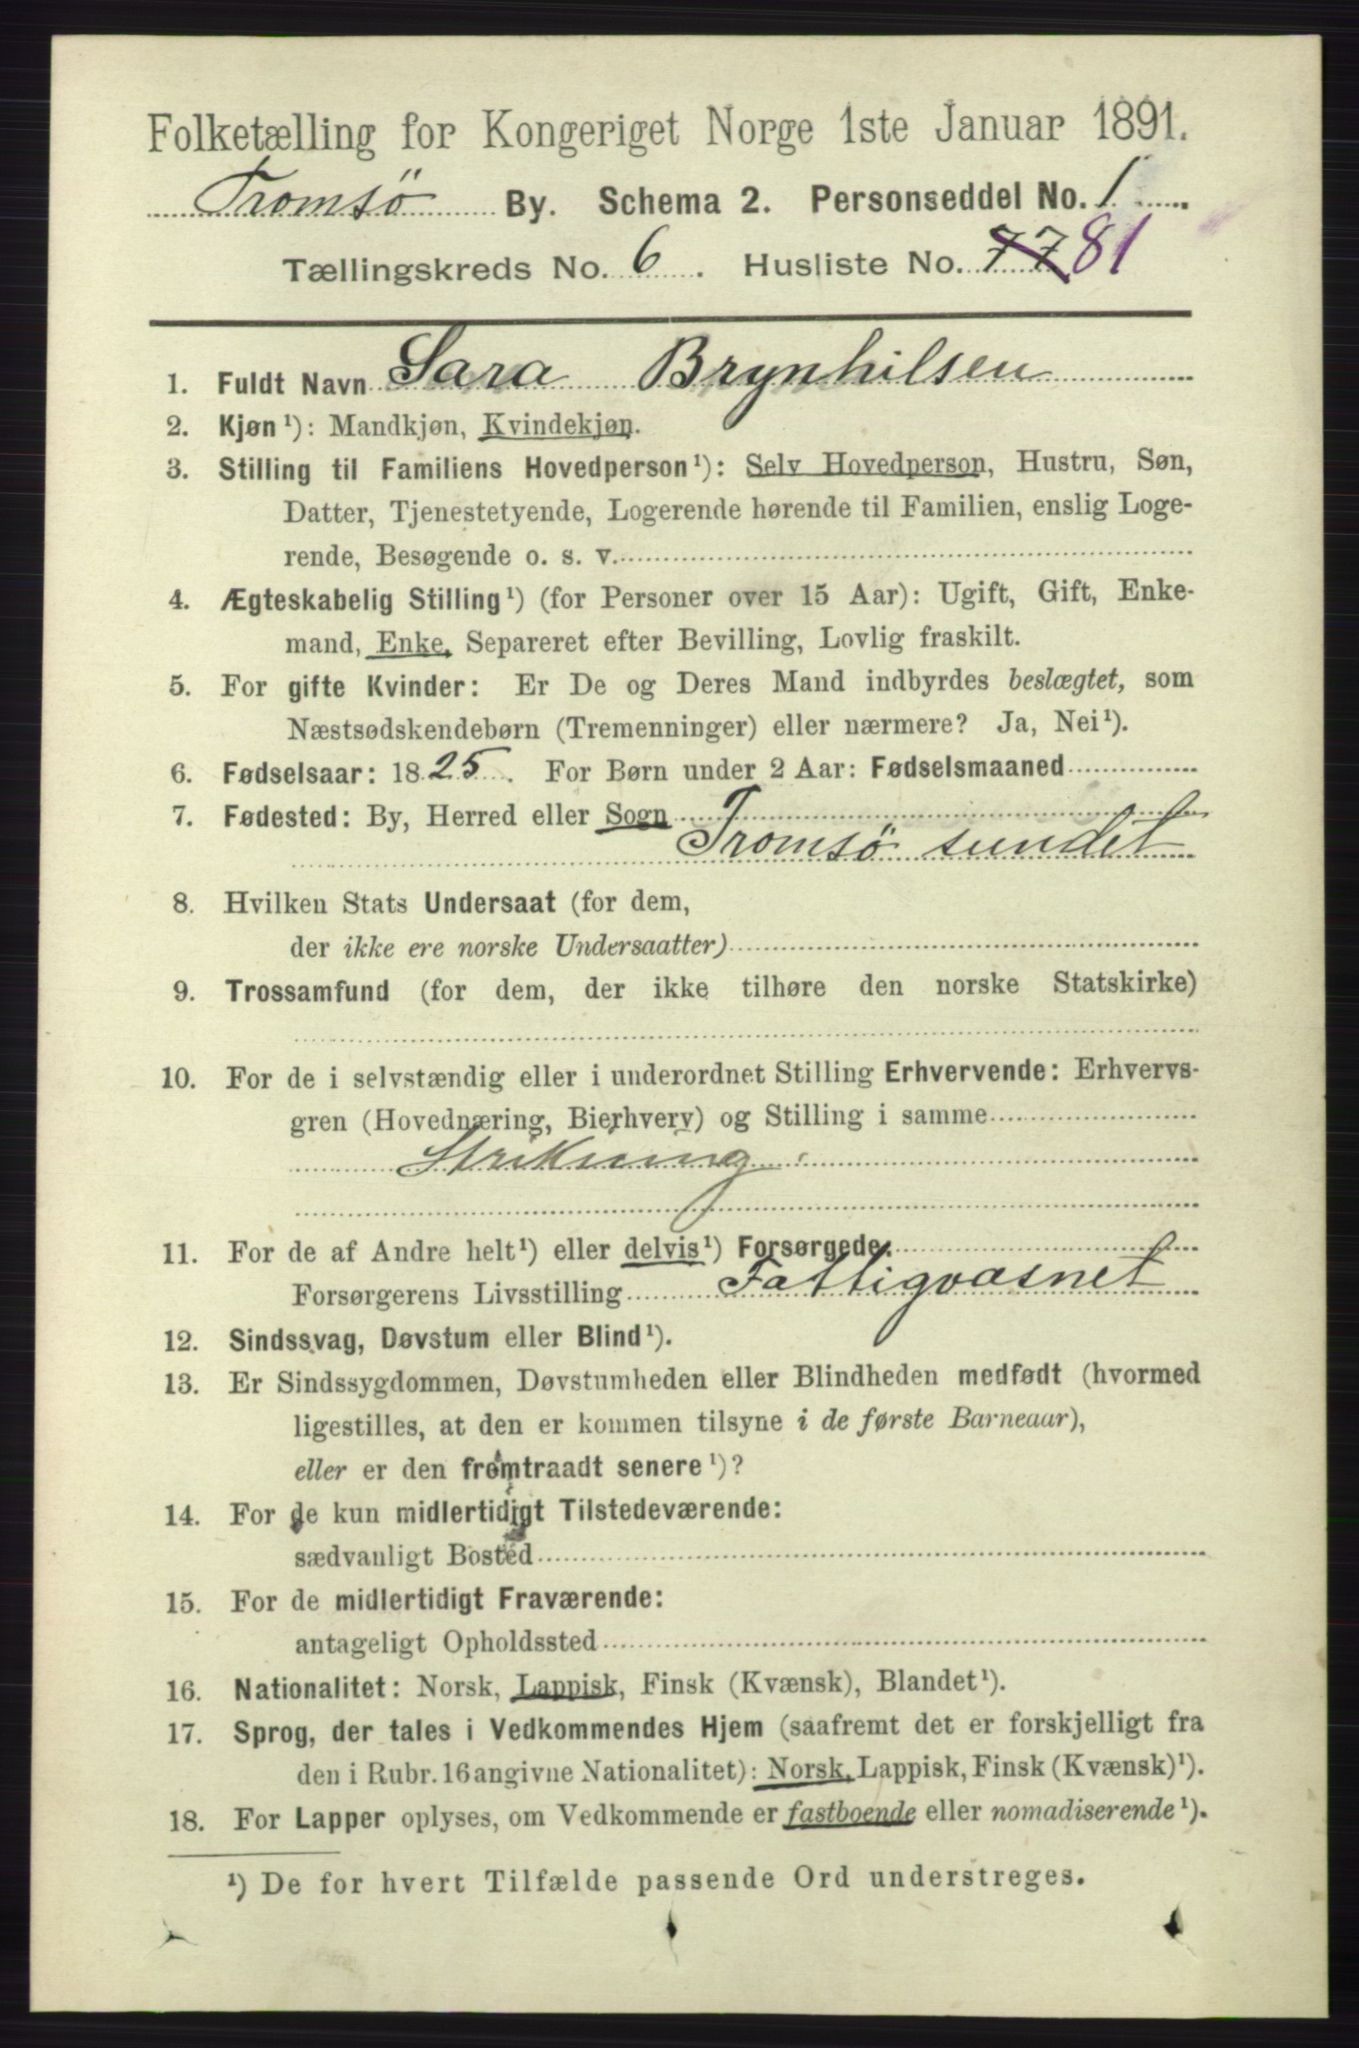 Folketælling for Kongeriget Norge 1ste Januar 1891.
Tromsö By. Schema 2. Personseddel No. 1
Tællingskreds No. 6. Husliste No. 77 81
1. Fuldt Navn Sara Brynhilsen
2. Kjøn¹): Mandkjøn, Kvindekjøn.
3. Stilling til Familiens Hovedperson¹): Selv Hovedperson, Hustru, Søn,
Datter, Tjenestetyende, Logerende hørende til Familien, enslig Loge-
rende, Besøgende o. s. v.
4. Ægteskabelig Stilling¹) (for Personer over 15 Aar): Ugift, Gift, Enke-
mand, Enke, Separeret efter Bevilling, Lovlig fraskilt.
5. For gifte Kvinder: Er De og Deres Mand indbyrdes beslægtet, som
Næstsødskendebørn (Tremenninger) eller nærmere? Ja, Nei¹).
6. Fødselsaar: 1825. For Børn under 2 Aar: Fødselsmaaned
7. Fødested: By, Herred eller Sogn
Tromsö sundet
8. Hvilken Stats Undersaat (for dem,
der ikke ere norske Undersaatter)
9. Trossamfund (for dem, der ikke tilhøre den norske Statskirke)
10. For de i selvstændig eller i underordnet Stilling Erhvervende: Erhvervs-
gren (Hovednæring, Bierhverv) og Stilling i samme
Strikning
11. For de af Andre helt¹) eller delvis¹) Forsørgede:
Forsørgerens Livsstilling Fattigvæsnet
12. Sindssvag, Døvstum eller Blind¹).
13. Er Sindssygdommen, Døvstumheden eller Blindheden medfødt (hvormed
ligestilles, at den er kommen tilsyne i de første Barneaar),
eller er den fremtraadt senere¹)?
14. For de kun midlertidigt Tilstedeværende:
sædvanligt Bosted
15. For de midlertidigt Fraværende:
antageligt Opholdssted
16. Nationalitet: Norsk, Lappisk, Finsk (Kvænsk), Blandet¹).
17. Sprog, der tales i Vedkommendes Hjem (saafremt det er forskjelligt fra
den i Rubr. 16 angivne Nationalitet): Norsk, Lappisk, Finsk (Kvænsk)¹).
18. For Lapper oplyses, om Vedkommende er fastboende eller nomadiserende¹).
¹) De for hvert Tilfælde passende Ord understreges.